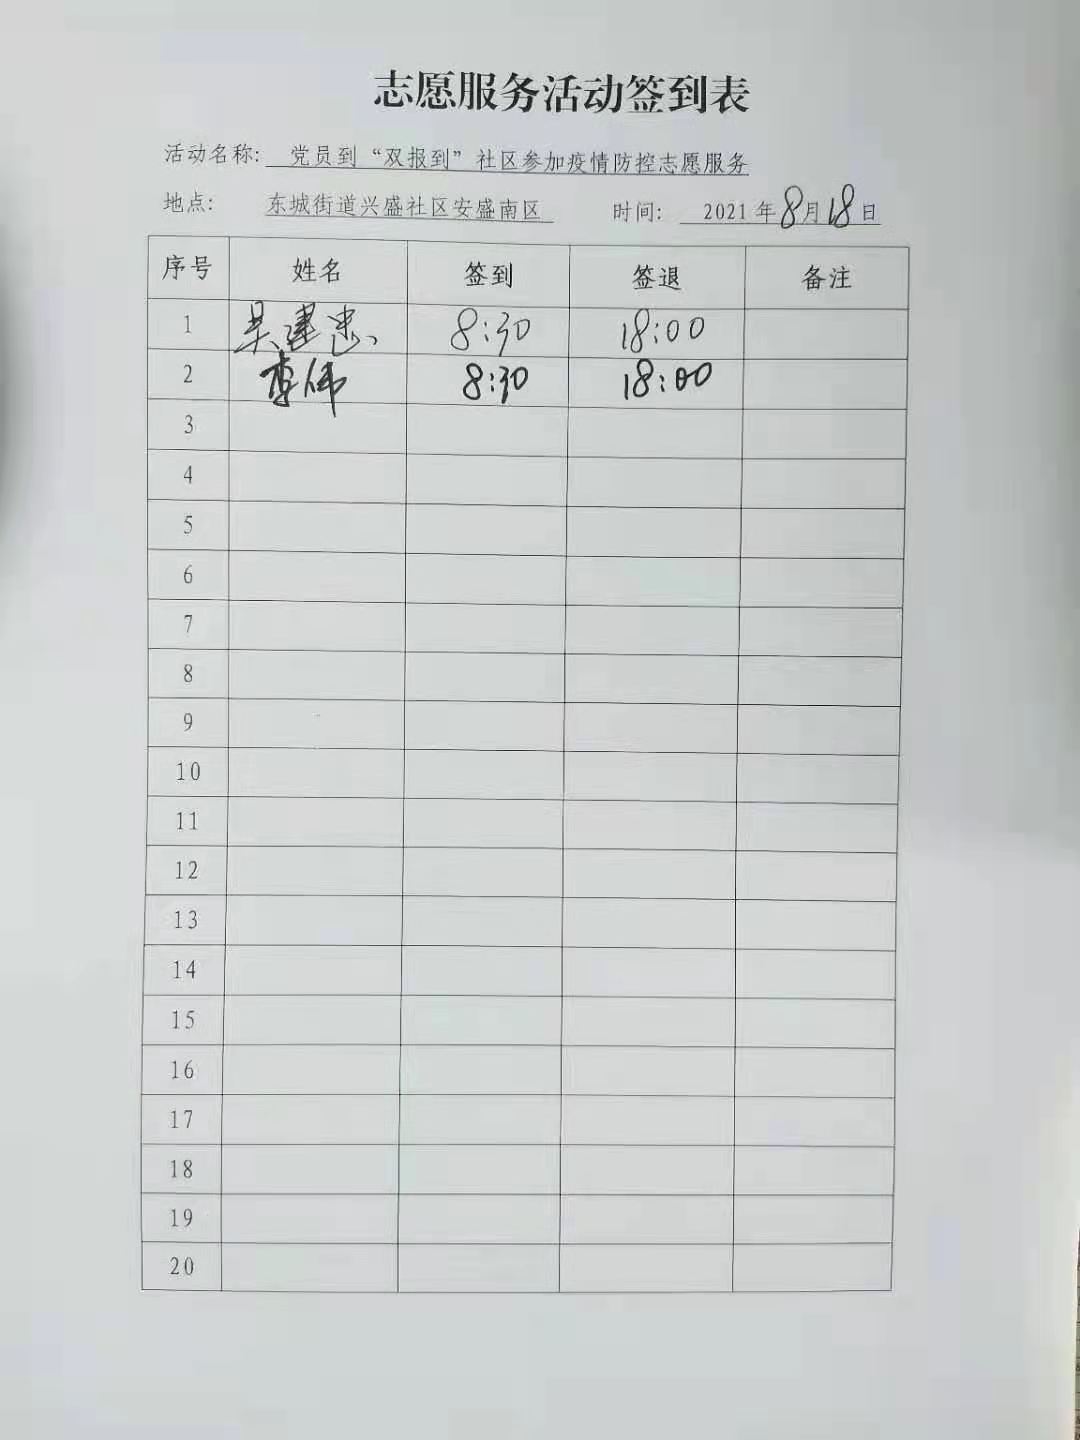 志愿服务活动签到表
活动名称: 党员到“双报到”社区参加疫情防控志愿服务
地点: 东城街道兴盛社区安盛南区 时间: 2021年8月18日
序号 姓名 签到 签退 备注
1 吴建忠 8:30 18:00
2 李伟 8:30 18:00
3
4
5
6
7
8
9
10
11
12
13
14
15
16
17
18
19
20